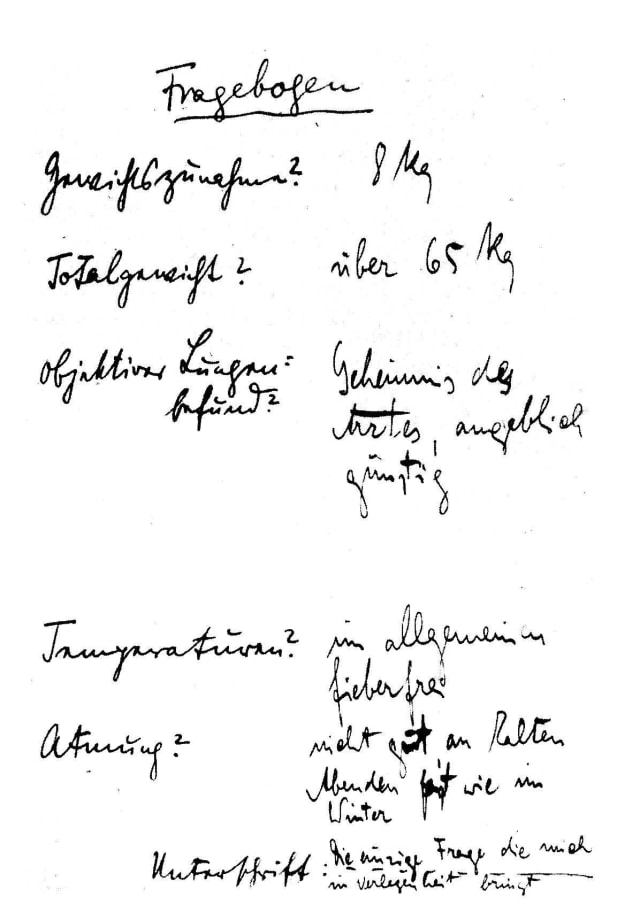 Fragebogen
Gewichtszunahme? 8 Kg
Totalgewicht? über 65 Kg
Objektiver Lungen= Geheimnis des
befund? Arztes, angeblich
günstig
Temperaturen? im allgemeinen
fieberfrei
Atmung? nicht gut an kalten
Abenden fast wie im
Winter
Unterschrift: Die einzige Frage die mich
in Verlegenheit bringt